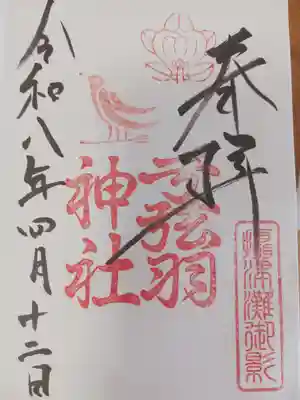 奉拝
攝津灘御影
弓弦羽
神社
令和八年四月十二日